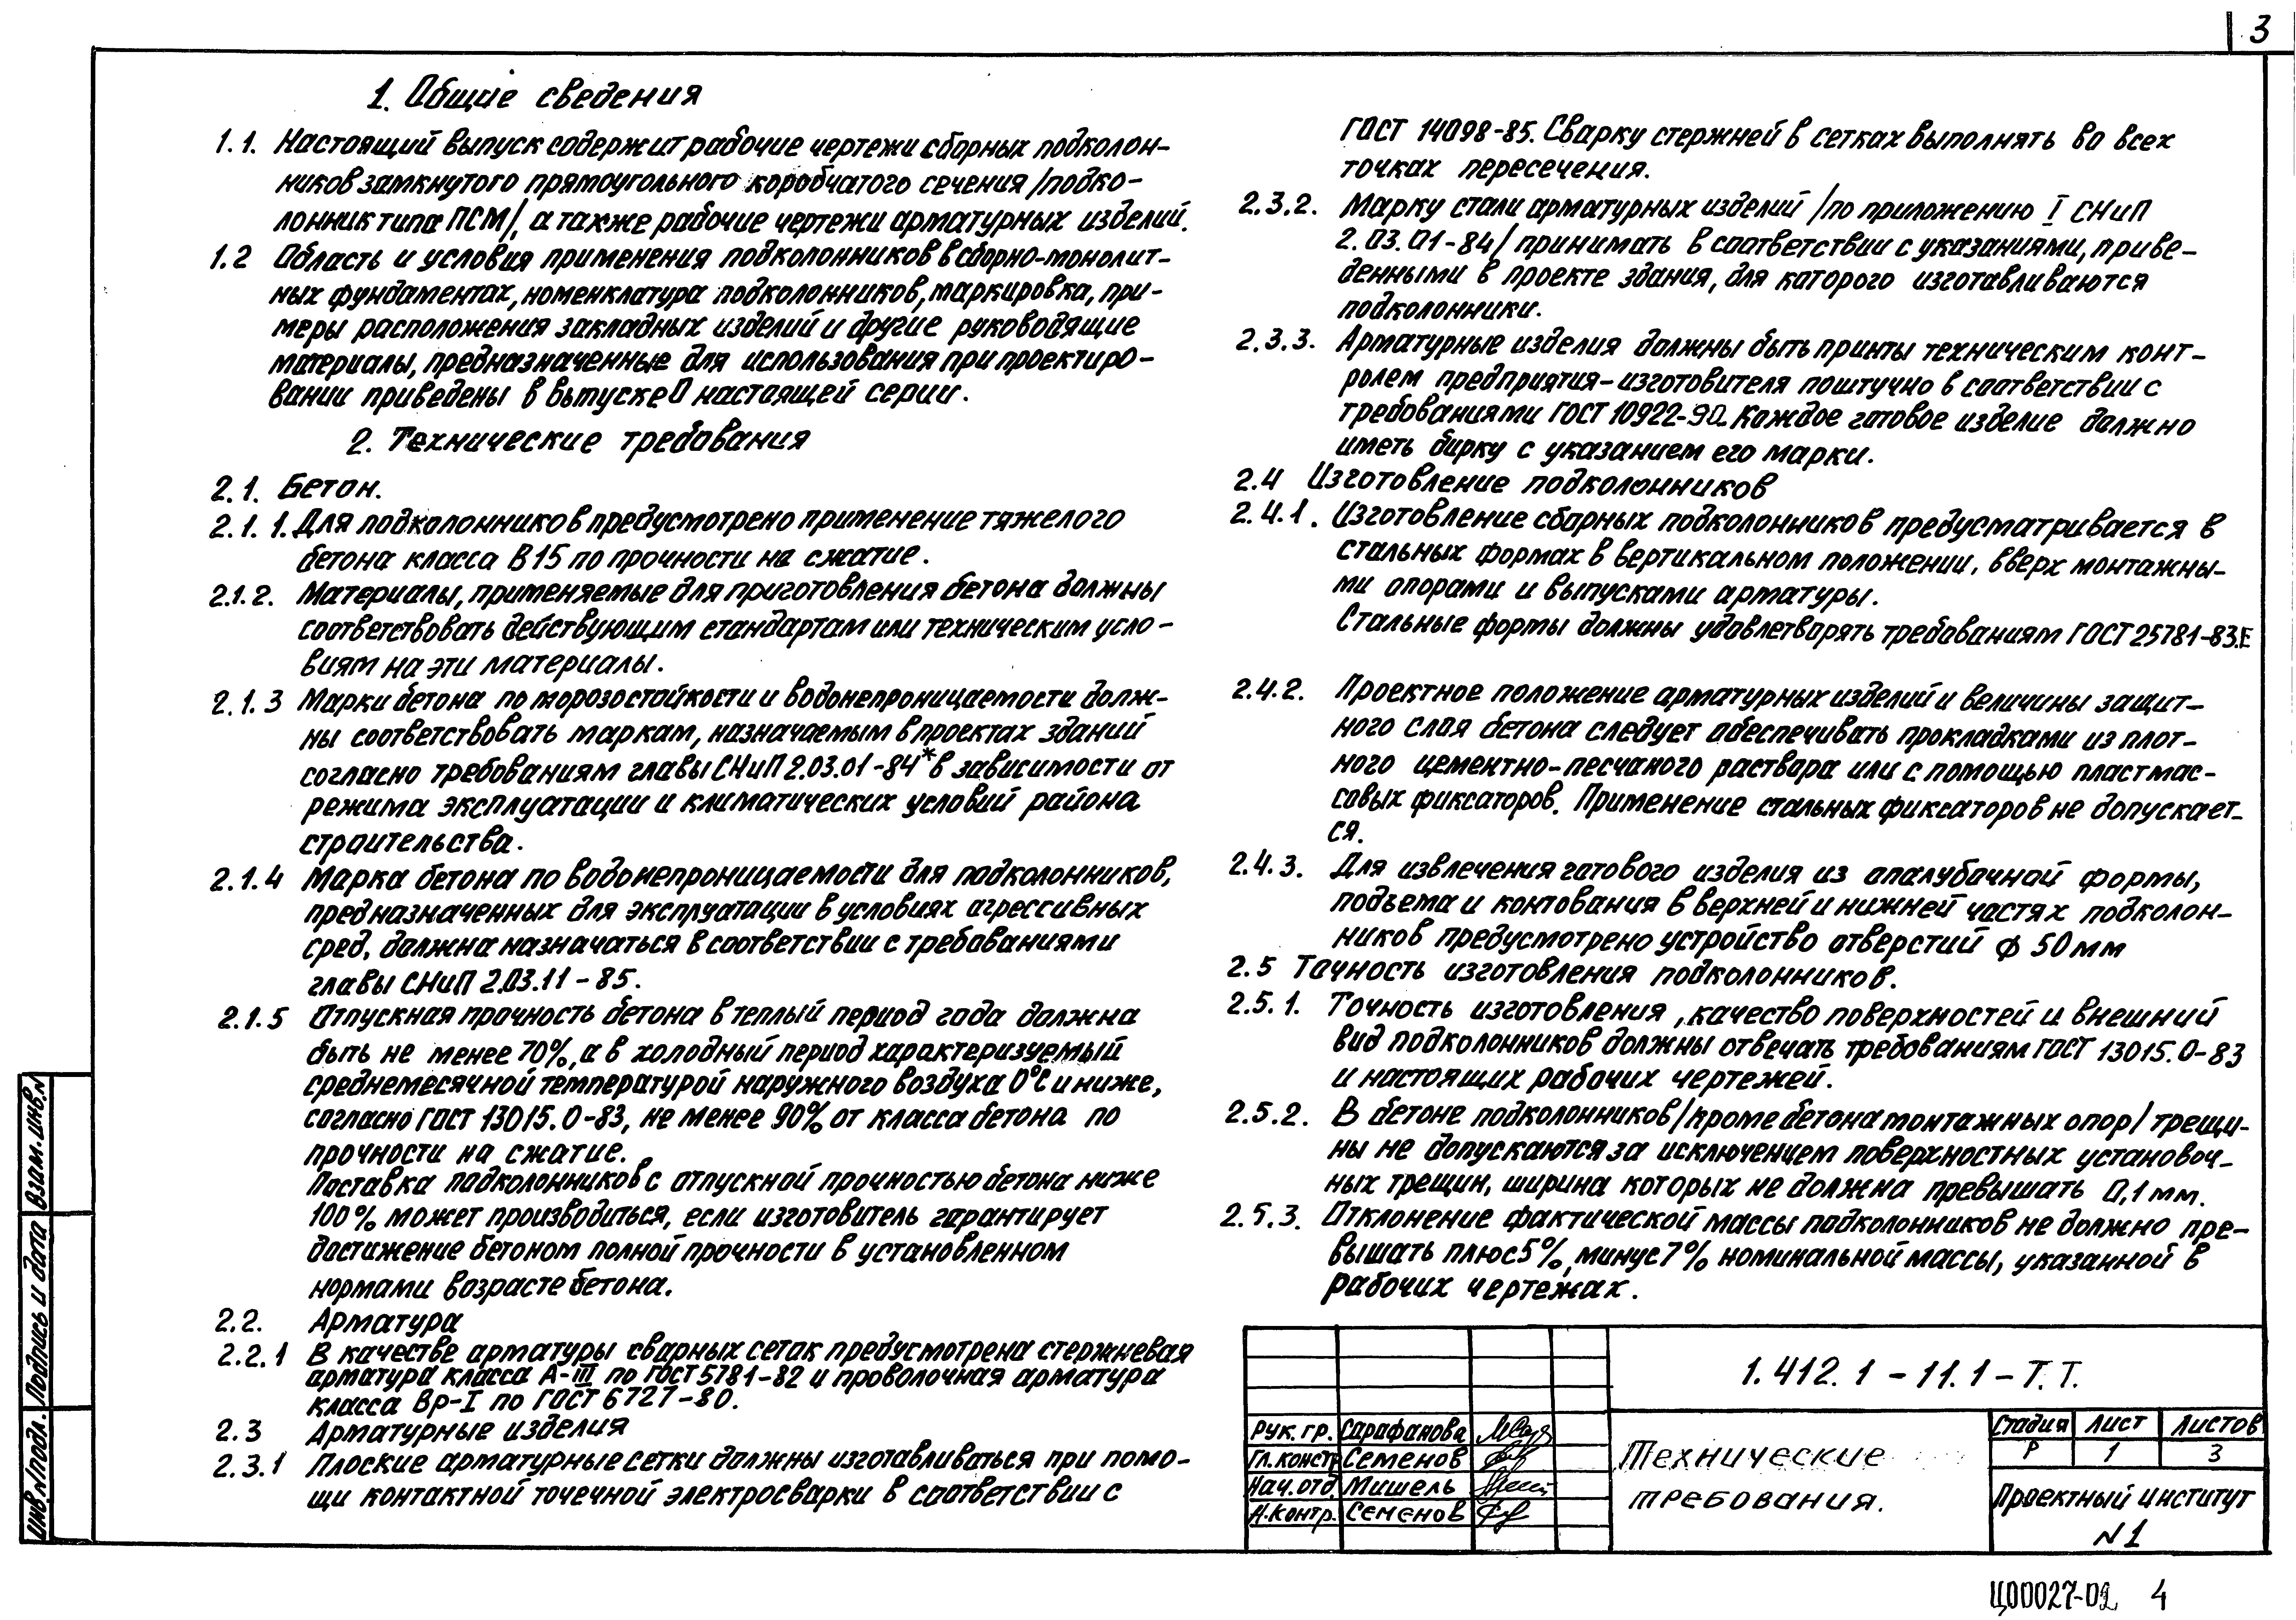 3
1. Общие сведения
1.1. Настоящий выпуск содержит рабочие чертежи сборных подколон-
ников замкнутого прямоугольного коробчатого сечения /подко-
лонник типа ПСМ/, а также рабочие чертежи арматурных изделий.
1.2 Область и условия применения подколонников в сборно-монолит-
ных фундаментах, номенклатура подколонников, маркировка, при-
меры расположения закладных изделий и другие руководящие
материалы, предназначенные для использования при проектиро-
вании приведены в выпуске 0 настоящей серии.
2. Технические требования
2.1. Бетон.
2.1.1. Для подколонников предусмотрено применение тяжелого
бетона класса В15 по прочности на сжатие.
2.1.2. Материалы, применяемые для приготовления бетона должны
соответствовать действующим стандартам или техническим усло-
виям на эти материалы.
2.1.3 Марки бетона по морозостойкости и водонепроницаемости долж-
ны соответствовать маркам, назначаемым в проектах зданий
согласно требованиям главы СНиП 2.03.01-84* в зависимости от
режима эксплуатации и климатических условий района
строительства.
2.1.4 Марка бетона по водонепроницаемости для подколонников,
предназначенных для эксплуатации в условиях агрессивных
сред, должна назначаться в соответствии с требованиями
главы СНиП 2.03.11-85.
2.1.5 Отпускная прочность бетона в теплый период года должна
быть не менее 70%, а в холодный период характеризуемый
среднемесячной температурой наружного воздуха 0°С и ниже,
согласно ГОСТ 13015.0-83, не менее 90% от класса бетона по
прочности на сжатие.
Поставка подколонников с отпускной прочностью бетона ниже
100% может производиться, если изготовитель гарантирует
достижение бетоном полной прочности в установленном
нормами возрасте бетона.
2.2. Арматура
2.2.1 В качестве арматуры сварных сеток предусмотрена стержневая
арматура класса А-III по ГОСТ 5781-82 и проволочная арматура
класса Вр-I по ГОСТ 6727-80.
2.3 Арматурные изделия
2.3.1 Плоские арматурные сетки должны изготавливаться при помо-
щи контактной точечной электросварки в соответствии с
ГОСТ 14098-85. Сварку стержней в сетках выполнять во всех
точках пересечения.
2.3.2. Марку стали арматурных изделий /по приложению I СНиП
2.03.01-84/ принимать в соответствии с указаниями, приве-
денными в проекте здания, для которого изготавливаются
подколонники.
2.3.3. Арматурные изделия должны быть принты техническим конт-
ролем предприятия-изготовителя поштучно в соответствии с
требованиями ГОСТ 10922-90. Каждое готовое изделие должно
иметь бирку с указанием его марки.
2.4 Изготовление подколонников
2.4.1. Изготовление сборных подколонников предусматривается в
стальных формах в вертикальном положении, вверх монтажны-
ми опорами и выпусками арматуры.
Стальные формы должны удовлетворять требованиям ГОСТ 25781-83.Е
2.4.2. Проектное положение арматурных изделий и величины защит-
ного слоя бетона следует обеспечивать прокладками из плот-
ного цементно-песчаного раствора или с помощью пластмас-
совых фиксаторов. Применение стальных фиксаторов не допускает-
ся.
2.4.3. Для извлечения готового изделия из опалубочной формы,
подъема и контования в верхней и нижней частях подколон-
ников предусмотрено устройство отверстий ф 50 мм
2.5 Точность изготовления подколонников.
2.5.1. Точность изготовления, качество поверхностей и внешний
вид подколонников должны отвечать требованиям ГОСТ 13015.0-83
и настоящих рабочих чертежей.
2.5.2. В бетоне подколонников /кроме бетона монтажных опор/ трещи-
ны не допускаются за исключением поверхностных установоч-
ных трещин, ширина которых не должна превышать 0,1 мм.
2.5.3. Отклонение фактической массы подколонников не должно пре-
вышать плюс 5%, минус 7% номинальной массы, указанной в
рабочих чертежах.
1.412.1-11.1-Т.Т.
Рук. гр. Сарафанова
Гл. констр Семенов
Нач. отд Мишель
Н. контр. Семенов
Технические
требования.
Стадия Лист Листов
Р 1 3
Проектный институт
N1
Взам. инв. N
Подпись и дата
Инв. N подл.
Ц00027-02 4